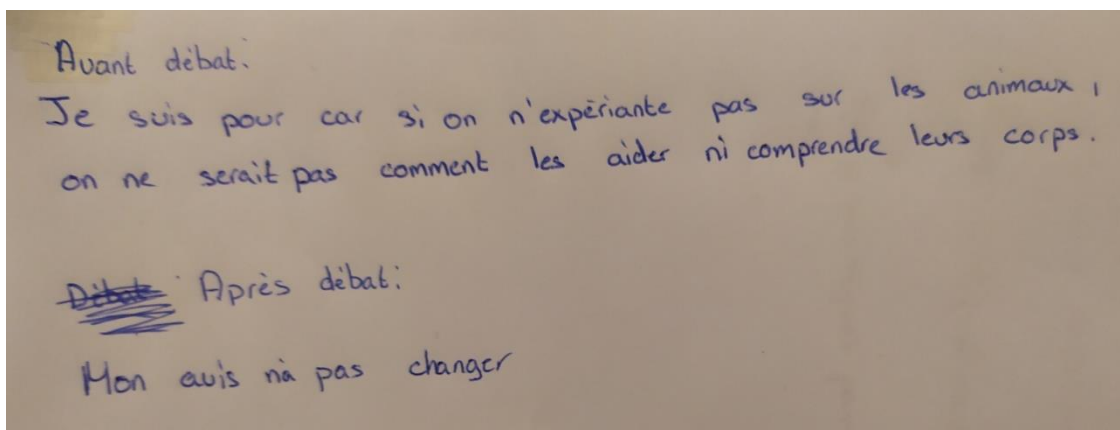 Avant débat:
Je suis pour car si on n'expériante pas sur les animaux,
on ne serait pas comment les aider ni comprendre leurs corps.
Après débat:
Mon avis n'à pas changer